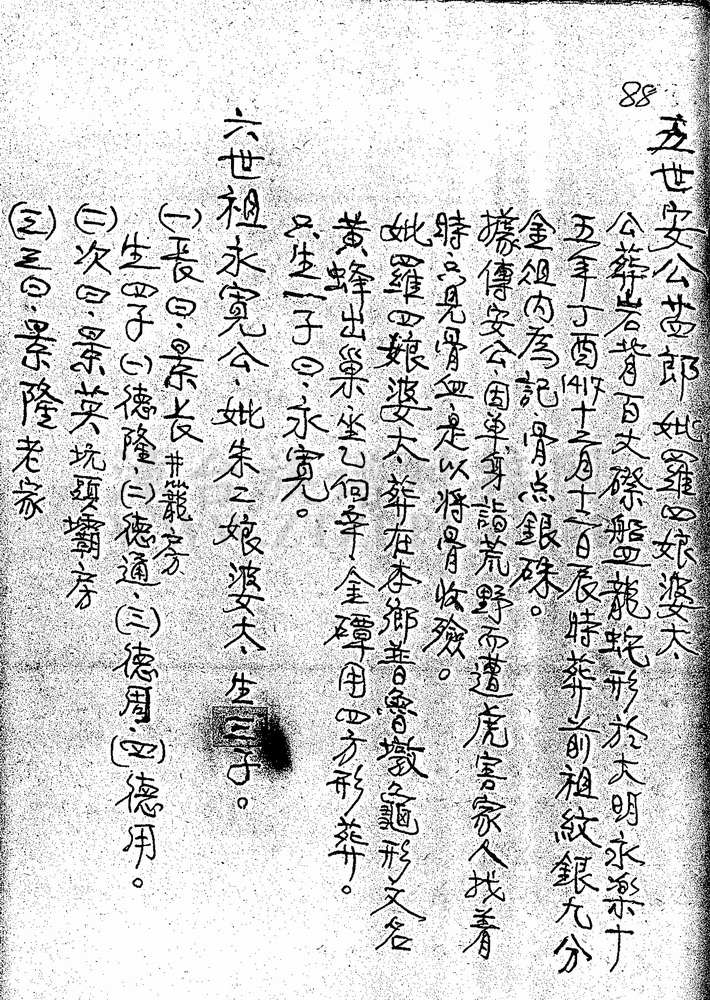 88
五世安公苗郎妣羅四娘婆太
公葬岩背百丈磜盤龍蛇形於大明永樂十
五年丁酉1417十二月十二日辰時葬前祖紋銀九分
金俎內為記骨点銀硃。
據傳安公因单身詣荒野而遭虎害家人找着
時只見骨血是以將骨收殮。
妣羅四娘婆太葬在本鄉普魯墩龜形文名
黃蜂出巢坐乙向辛金磹用四方形葬。
只生一子曰永寬。
六世祖永寬公妣朱二娘婆太生三子。
(一)長曰景長井龍房
生四子(一)德隆(二)德通(三)德周(四)德用。
(二)次曰景英坑頭壩房
(三)三曰景隆老家